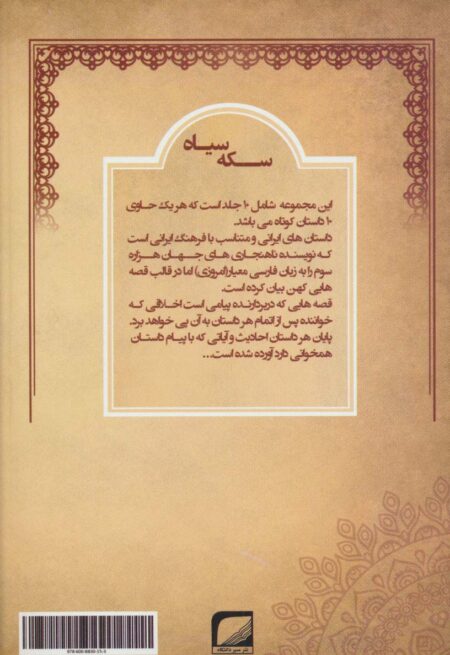 سکه سیاه
این مجموعه شامل ۱۰ جلد است که هر یک حاوی
۱۰ داستان کوتاه می باشد.
داستان های ایرانی و متناسب با فرهنگ ایرانی است
که نویسنده ناهنجاری های جهان هزاره
سوم را به زبان فارسی معیار(امروزی) اما در قالب قصه
هایی کهن بیان کرده است.
قصه هایی که دربردارنده پیامی است اخلاقی که
خواننده پس از اتمام هر داستان به آن پی خواهد برد.
پایان هر داستان احادیث و آیاتی که با پیام داستان
همخوانی دارد آورده شده است...
نشر سبر دانشگاه